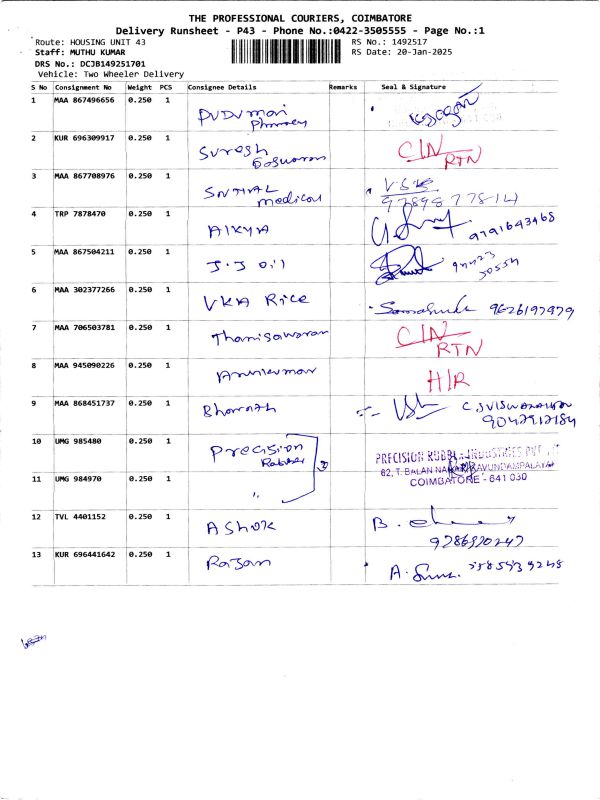 THE PROFESSIONAL COURIERS, COIMBATORE
Delivery Runsheet - P43 - Phone No.:0422-3505555 - Page No.:1
Route: HOUSING UNIT 43 RS No.: 1492517
Staff: MUTHU KUMAR RS Date: 20-Jan-2025
DRS No.: DCJB149251701
Vehicle: Two Wheeler Delivery
S No Consignment No Weight PCS Consignee Details Remarks Seal & Signature
1 MAA 867496656 0.250 1 PUDUmari
Pharmacy
2 KUR 696309917 0.250 1 Suresh CIN
RTN
3 MAA 867708976 0.250 1
medical 9789877814
4 TRP 7878470 0.250 1 AIKYA 9791643468
5 MAA 867504211 0.250 1 J.J oil
6 MAA 302377266 0.250 1 VKA Rice 9626197979
7 MAA 706503781 0.250 1 Thanisawaran CIN
RTN
8 MAA 945090226 0.250 1 H/R
9 MAA 868451737 0.250 1 Bharath
9042912184
10 UMG 985480 0.250 1 Precision
PRECISION RUBBER INDUSTRIES PVT
62, T. BALAN NAGAR, KAVUNDAMPALAYAM
COIMBATORE - 641 030
11 UMG 984970 0.250 1 "
12 TVL 4401152 0.250 1 AShOK
9786920247
13 KUR 696441642 0.250 1 Rajan